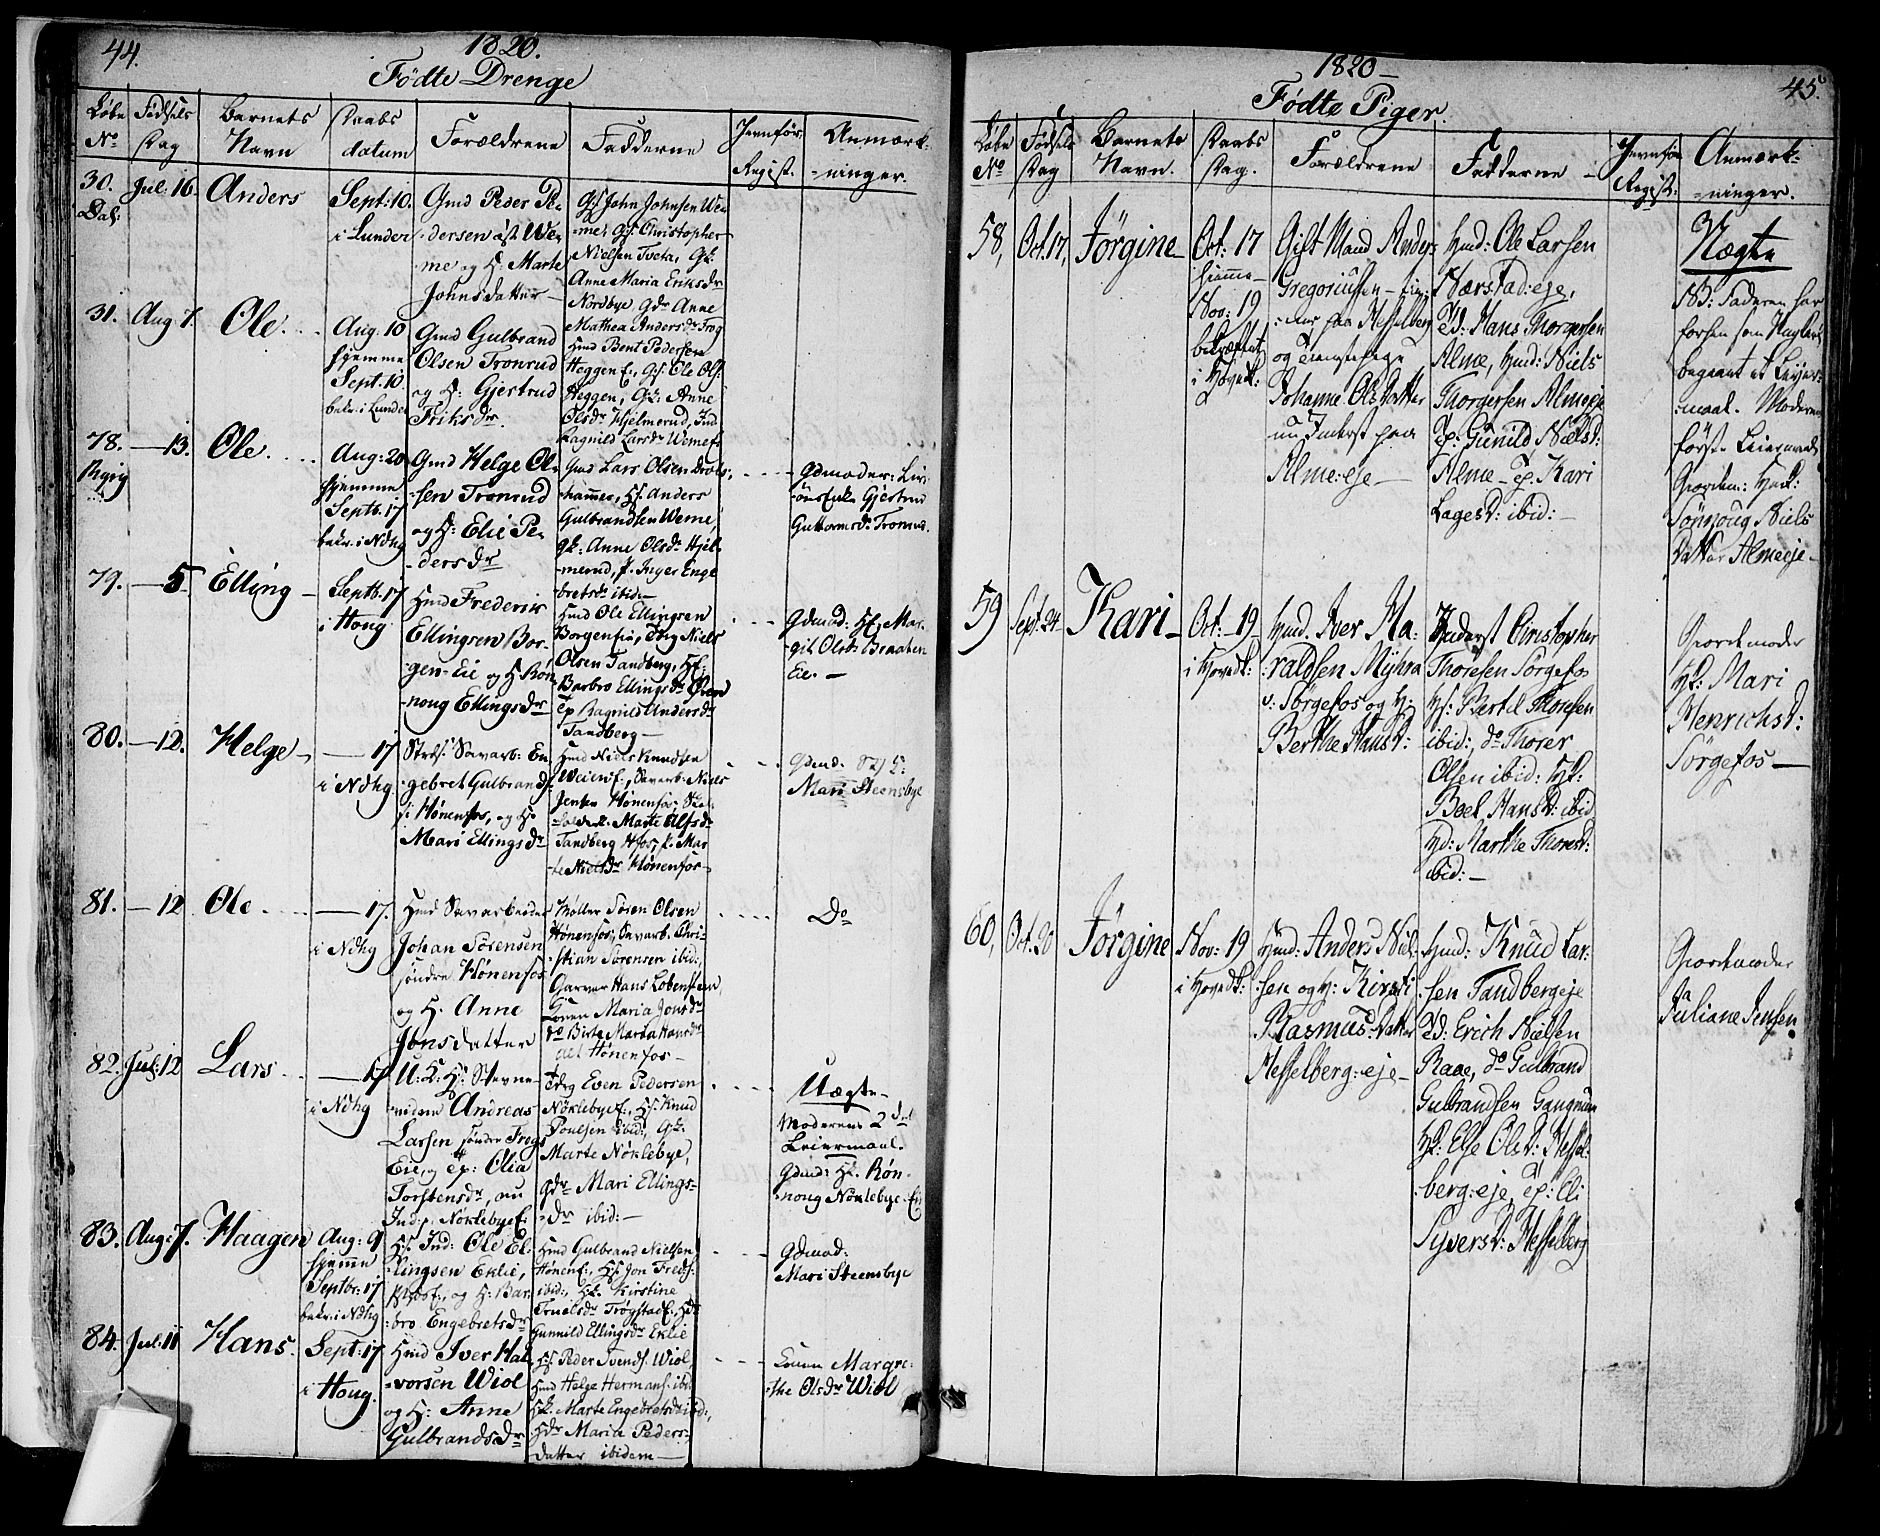 44.
1820.
Födte Drenge
Løbe No
Födsels Dag
Barnets Navn
Daabs datum
Forældrene
Fadderne
Jevnför. Regist.
Anmærk-
=ninger.
30.
Dal:
Jul: 16.
Anders
Sept: 10.
i Lunder
Gmd Peder Pe-
dersen öst. We-
me og H: Marte
Johnsdatter—
Gf. John Johnsen We-
me, Gf. Christopher
Nielsen Tveta, Gk:
Anne Maria Eriksdr
Nordbye Gdr Anne
Mathea Andersdr Frog
31.
Aug 7.
Ole
Aug. 10
hjemme
Sept. 10.
bekr. i Lunder
Gmd Gulbrand
Olsen Tronrud
og H: Gjertrud
Eriksdr
Hmd Bent Pedersen
Heggen E., Gf. Ole Ols.
Heggen, Gk: Anne
Olsdr Hjelmerud, Ind
Ragnild Larsdr Wemef.
78.
—13.
Ole
Aug: 20
hjemme
Septb. 17
bekr. i Ndhg
Gmd Helge Ol-
sen Tronrud
og H: Elie Pe-
dersdr
Gmd Lars Olsen
hammer, Hf. Anders
Gulbrandsen Weme,
gk: Anne Olsdr Hjel-
merud, p. Inger Enge
bretsdr ibid:—
Gdmoder: Liv-
örs Enke Gjertrud
Guttormsdr Tronrud.
79.
—5
Elling
Septb. 17
i Houg
Hmd Frederik
Ellingsen Bor-
gen-Eie og H. Rön-
noug Ellingsdr
Hmd Ole Ellingsen
Borgenfie, Tdg Niels
Olsen Tandberg, Hf:
Barbro Ellingsdr Ören
Ep Ragnild Andersdr
Tandberg—
Gdmod: Hf. Mar-
git Olsdr Braaten
Eie.—
80.
—12.
Helge
—17
i Ndhg
Savarb: En-
gebret Gulbrands.
i Hönenfos, og H:
Mari Ellingsdr
Hmd Niels Knudsen
Weienf., Savarb. Niels
Jensen Hönenfos,
Marte Alfsdr
Tandberg Hfos, p. Mar-
te Nielsdr Hönenfos—
Gdmd.
Mari Steensbye
81.
—12
Ole
—17.
i Ndhg
Hmd Savarbeider
Johan Sörensen
söndre Hönenfos
og H. Anne
Jönsdatter
Möller Sören Olsen
Hönenfos, Savarb. Chri-
stian Sörensen ibid:,
Garver Hans Lobenstein,
Konen Maria Jonsdr
Do Birte Marta Hansdr
Hönenfos—
Do
82.
Jul: 12
Lars
—17
i Ndhg
U: K: Hf: Stevne-
vidne Andreas
Larsen söndre Frogs
Eie, og ep: Olia
Torstensdr, nu
Ind: p. Nöklebyef:
Tdg Even Pedersen
Nöklebyef:, Hf. Knud
Poulsen ibid:, Gk:
Marte Nöklebye,
Gdr Mari Ellings-
dr ibid:—
Uægte—
Moderens 2det
Leiermaal.
Gdmd: Hk. Rön-
noug Nöklebye-Eie
83.
Aug: 7.
Haagen
Aug: 9
hjemme
Septbr: 17
bekr. i Ndhg
Hf. Ind: Ole El-
lingsen Eklie,
og H: Bar-
bro Engebretsdr
Hmd Gulbrand Nielsen
Hönenf., Hf. Jon Freds:
ibid:, Hk. Kirstine
Truelsdr Trögstad E., Hdr
Gunnild Ellingsdr Eklie
Gdmod:
Mari Steensbye
84.
Jul: 11
Hans.
Sept: 17
i Houg.
Hmd Iver Hal-
vorsen Wiöl
og H: Anne
Gulbrandsdr
Hf. Peder Svends. Wiöl,
Hmd Helge Hermans. ibid
Hk. Marte Engebretsdr ibid:,
Hdr Maria Peders-
datter ibidem—
Konen Margre-
the Olsdr Wiöl
45.
1820—
Födte Piger.
Löbe No
Födsels Dag
Barnets Navn.
Daabs Dag.
Forældrene
Fadderne—
Jevnför Regist:
Anmærk:
=ninger.
58,
Oct. 17,
Jörgine—
Oct: 17
hjemme—
Nov: 19
bekræftet
i Hovedk:
Gift Mand Anders
Gregoriussen—
paa Hesselberg
og Tienestepige
Johanne Ols Datter
nu Inderst paa
Alme:eje—
Hmd: Ole Larsen
Nærstad:eje,
Yd: Hans Thorgersen
Alme, Hmd: Niels
Thorgersen Almeeje
Ep: Gunild Nielsd:
Alme— Ep. Kari
Lagesd: ibid:—
Uægte
NB: Faderen har
forhen som
begaaet et Leier-
maal. Moderens
förste Leiermaal
Gjordem:
Sönnoug Niels
Datter Almeeje—
59
Sept. 24
Kari—
Oct: 19
i Hovedk:
Hmd. Iver Ha-
raldsen Myhra
v: Sörgefos og H:
Berthe Hansd:
Inderst Christopher
Thoresen Sörgefos
Hf: Bertel Thoresen
ibid:, do Thorer
Olsen ibid: Hk:
Boel Hansd: ibid
Yd: Marthe Thoresd:
ibid:—
Gjordemoder
Hk: Mari
Henrichsd:
Sörgefos—
60,
Oct. 20
Jörgine
Nov: 19
i Hovedk:
Hmd: Anders Niel-
sen og H: Kirsti
Rasmus Datter
Hesselberg:eje—
Hmd: Knud Lar-
sen Tandbergeje
Yd: Erich Nielsen
Raae, do Gulbrand
Gulbrandsen Gangnum
Hk: Else Olsd: Hessel-
berg:eje, Ep: Eli
Syversd: Hesselberg
Gjordemoder
Juliane Jensen